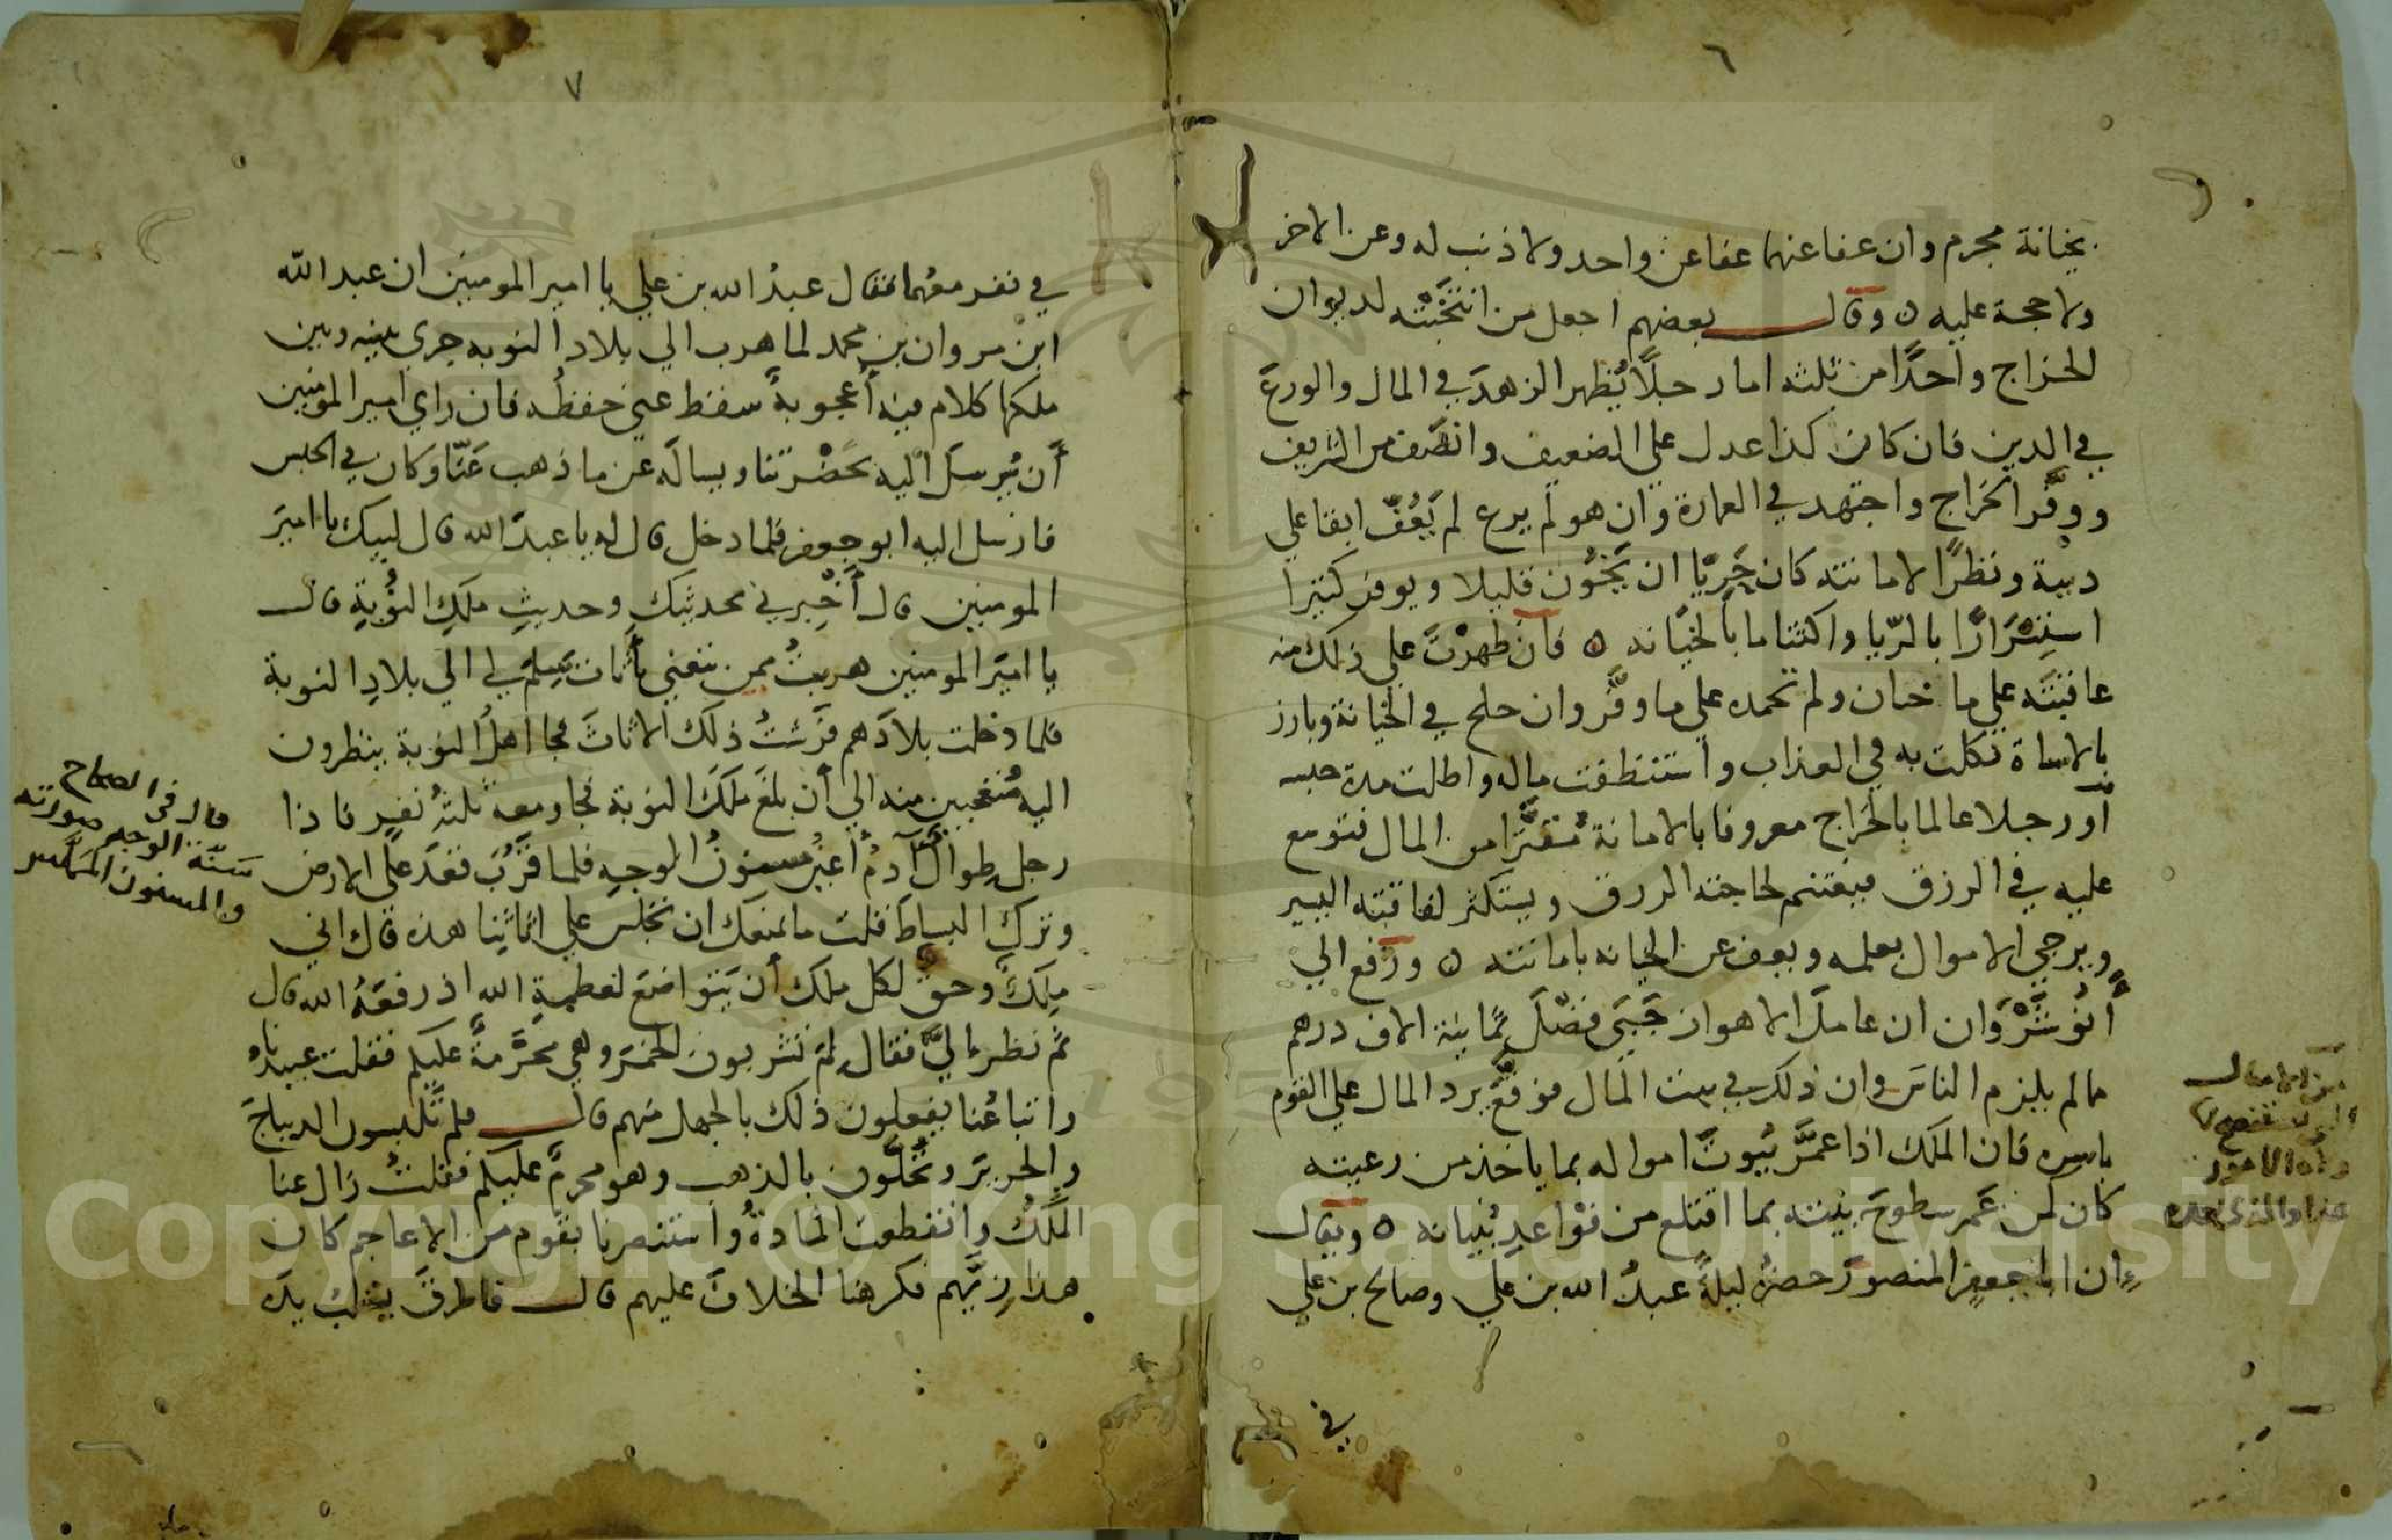 ٦
بخيانة مجرم وان عفا عنهما عفا عن واحد ولا ذنب له وعن الاخر
ولا حجة عليه ه وقال بعضهم اجعل من انتخَبْتَه لديوان
الخراج واحدًا من ثلثه اما رجلًا يُظهر الزهدَ في المال والورعَ
في الدين فان كان كذا عدل على الضعيف وانصَف من الشريف
ووفَّر الخراج واجتهد في العمارة وان هو لم يرع لم يَعُفّ ابقا على
دينه ونظرًا لامانته كان حَرِيًّا ان يَخُون قليلا ويوفر كثيرا
استِسْرَارًا بالرّيا واكتتاما بالخيانه ه فان ظهرْتَ على ذلك منه
عاقبتَه على ما خان ولم تحمده على ما وفَّر وان جلح في الخيانة وبارز
بالاساة نكلت به في العذاب واستنظفت ماله واطلت مدة حبسه
او رجلا عالما بالخراج معروفا بالامانة مُقتِرًا من المال فتوسع
عليه في الرزق فيغتنم لحاجته الرزق ويستكثر لفاقته اليسير
ويزجي الاموال بعلمه ويعف عن الخيانه بامانته ه ورفع الي
أنُوشَرْوَان ان عاملَ الاهواز جَبَى فضْلَ ثمانية الاف درهم
مالم يلزم الناسَ وان ذلك في بيت المال فوقَّع يرد المال على القوم
باسره فان الملك اذا عمَّر بُيُوتَ امواله بما ياخذ من رعيته
كان كمن عَمر سطوحَ بيته بما اقتلع من قوْاعدِ بُنيانه ه ويقال
إن ابا جعفرٍ المنصورَ حضرَهُ ليلةً عبدُ الله بن علي وصالح بن علي
في
والامور
٧
في نفر معهما فقال عبدُ الله بن علي يا امير المومنين ان عبد الله
ابن مروان بن محمد لما هرب الي بلاد النوبه جري بينه وبين
ملكها كلام فيه أعجوبةٌ سقط عني حفظُه فان راي امير المومنين
أن يُرسلَ اليه بحَضْرتنا ويسالَه عن ما ذهب عَنّا وكان في الحبس
فارسل اليه ابو جعفر فلما دخل قال له يا عبدَ الله قال لبيك يا اميرَ
المومنين قال أخْبِرني بحديثِك وحديثِ ملكِ النُّوبةِ قال
يا اميرَ المومنين هربتُ ممن تبعني بأثاث سَلِمَ لي الي بلادِ النوبة
فلما دخلت بلادَهم فرَشتُ ذلك الاثاثَ فجا أهلُ النوبة ينظرون
اليه مُتعجبين منه الي أن بلغَ ملكَ النوبة فجا ومعه ثلثهُ نفرٍ فاذا
رجل طِوالٌ آدمُ أغبرُ مسنونُ الوجهِ فلما قرُبَ قعدَ على الارض
وتركَ البساطَ فقلت ما يمنعك ان تجلس على اثاثِنا هذه قال اني
ملِكٌ وحقٌ لكل ملك أن يتواضعَ لعظمةِ الله اذ رفعَهُ الله قال
ثم نظرَ اليَّ فقال لِمَ تشربون الخمرَ وهي محرَّمةٌ عليكم فقلت عبيدُنا
واتباعُنا يفعلون ذلك بالجهل منهم قال فلم تَلبسون الديباجَ
والحريرَ وتُحَلَّون بالذهب وهو محرمٌ عليكم فقلتُ زال عنا
المُلْكُ وانقطعت المادةُ واستنصرنا بقوم من الاعاجم كان
هذا زِيَّهم فكرهنا الخلافَ عليهم قال فاطرقَ يقلبُ يدَه
قال في الصحاح
سنّة الوجه صورته
والمسنون المملس